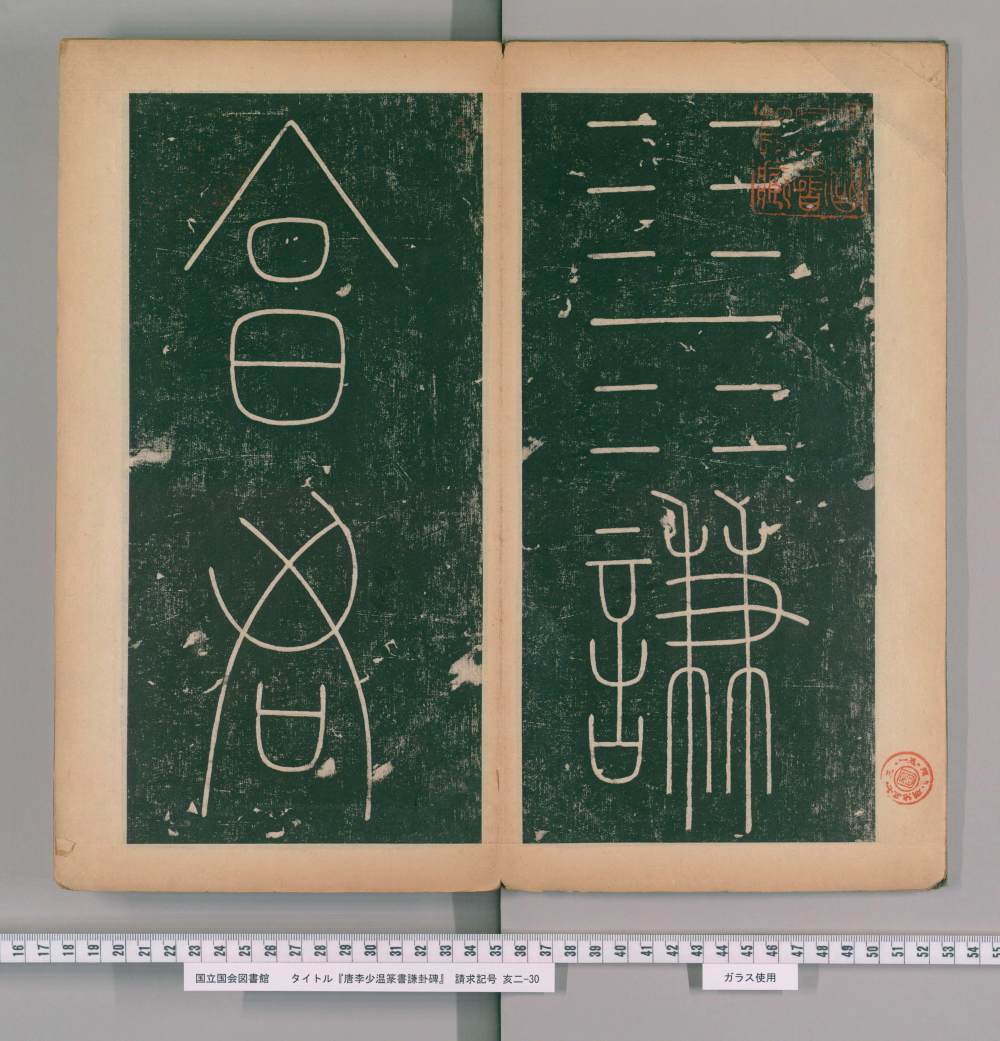 ䷎謙
亨君
16 17 18 19 20 21 22 23 24 25 26 27 28 29 30 31 32 33 34 35 36 37 38 39 40 41 42 43 44 45 46 47 48 49 50 51 52 53 54 55
国立国会図書館 タイトル『唐李少温篆書謙卦碑』 請求記号 亥二-30
ガラス使用